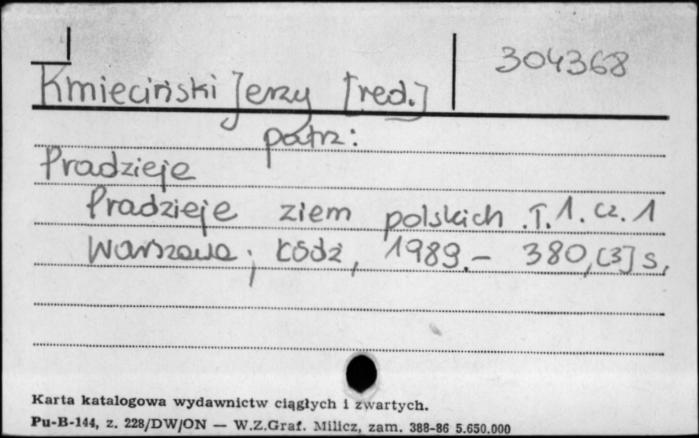 304368
Kmieciński Jerzy [red.]
patrz:
Pradzieje
Pradzieje ziem polskich. T.1. cz. 1
Warszawa; Łódź, 1989. - 380, [3] s.
Karta katalogowa wydawnictw ciągłych i zwartych.
Pu-B-144, z. 228/DW/ON — W.Z.Graf. Milicz, zam. 388-86 5.650.000